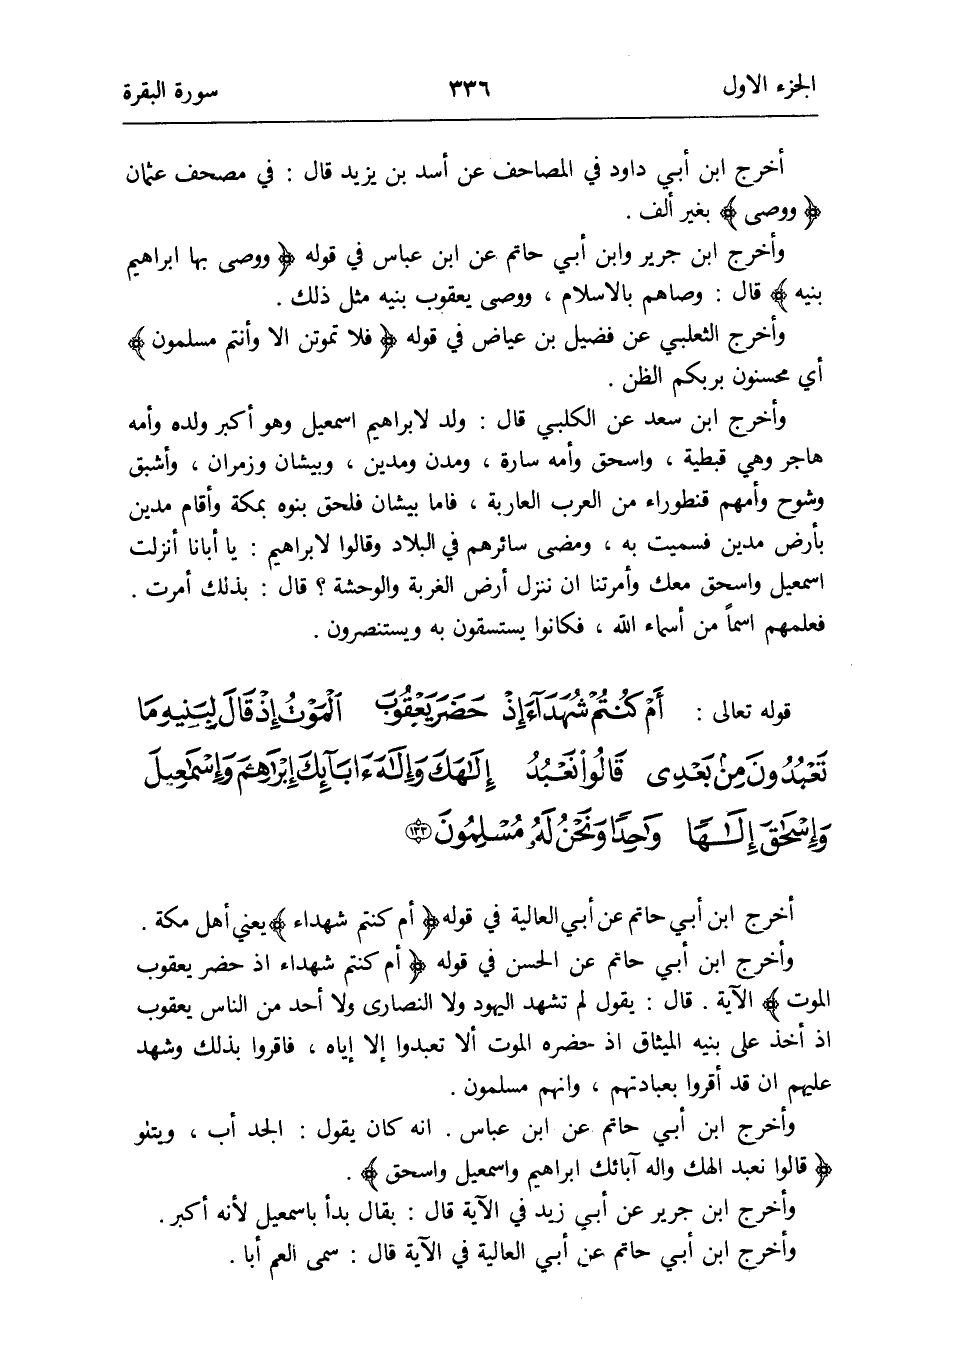 الجزء الاول ٣٣٦ سورة البقرة
أخرج ابن أبي داود في المصاحف عن أسد بن يزيد قال : في مصحف عثمان
﴿ ووصى ﴾ بغير ألف .
وأخرج ابن جرير وابن أبي حاتم عن ابن عباس في قوله ﴿ ووصى بها ابراهيم
بنيه ﴾ قال : وصاهم بالاسلام ، ووصى يعقوب بنيه مثل ذلك .
وأخرج الثعلبي عن فضيل بن عياض في قوله ﴿ فلا تموتن الا وأنتم مسلمون ﴾
أي محسنون بربكم الظن .
وأخرج ابن سعد عن الكلبي قال : ولد لابراهيم اسمعيل وهو أكبر ولده وأمه
هاجر وهي قبطية ، واسحق وأمه سارة ، ومدن ومدين ، وبيشان وزمران ، وأشبق
وشوح وأمهم قنطوراء من العرب العاربة ، فاما بيشان فلحق بنوه بمكة وأقام مدين
بأرض مدين فسميت به ، ومضى سائرهم في البلاد وقالوا لابراهيم : يا أبانا أنزلت
اسمعيل واسحق معك وأمرتنا ان ننزل أرض الغربة والوحشة ؟ قال : بذلك أمرت .
فعلمهم اسماً من أسماء الله ، فكانوا يستسقون به ويستنصرون .
قوله تعالى : أَمْ كُنتُمْ شُهَدَآءَ إِذْ حَضَرَ يَعْقُوبَ الْمَوْتُ إِذْ قَالَ لِبَنِيهِ مَا
تَعْبُدُونَ مِنْ بَعْدِى قَالُوا۟ نَعْبُدُ إِلَـٰهَكَ وَإِلَـٰهَ ءَابَآئِكَ إِبْرَٰهِـۧمَ وَإِسْمَـٰعِيلَ
وَإِسْحَـٰقَ إِلَـٰهًا وَٰحِدًا وَنَحْنُ لَهُۥ مُسْلِمُونَ ١٣٣
أخرج ابن أبي حاتم عن أبي العالية في قوله ﴿ أم كنتم شهداء ﴾ يعني أهل مكة .
وأخرج ابن أبي حاتم عن الحسن في قوله ﴿ أم كنتم شهداء اذ حضر يعقوب
الموت ﴾ الآية . قال : يقول لم تشهد اليهود ولا النصارى ولا أحد من الناس يعقوب
اذ أخذ على بنيه الميثاق اذ حضره الموت ألا تعبدوا إلا إياه ، فاقروا بذلك وشهد
عليهم ان قد أقروا بعبادتهم ، وانهم مسلمون .
وأخرج ابن أبي حاتم عن ابن عباس . انه كان يقول : الجد أب ، ويتلو
﴿ قالوا نعبد الهك واله آبائك ابراهيم واسمعيل واسحق ﴾ .
وأخرج ابن جرير عن أبي زيد في الآية قال : يقال بدأ باسمعيل لأنه أكبر .
وأخرج ابن أبي حاتم عن أبي العالية في الآية قال : سمى العم أبا .